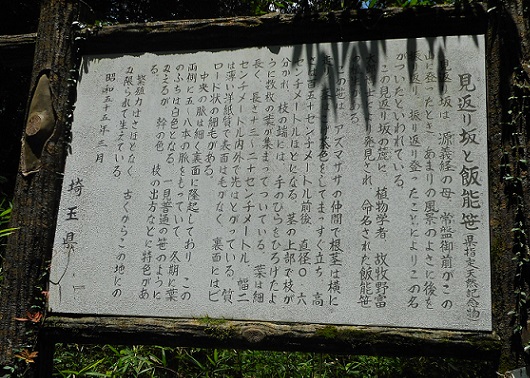 見返り坂と飯能笹 県指定天然記念物
見返り坂は、源義経の母、常盤御前がこの
山に登ったとき、あまりの風景のよさに後を
振り返り、振り返り登ったことによりこの名
がついたといわれている。
この見返り坂の麓に、植物学者、故牧野富
発見され、命名された飯能笹
アズマザサの仲間で根茎は横に
まっすぐ立ち、高
さは百五十センチメートル前後、直径〇・六
センチメートルほどになる。茎の上部で枝が
分かれ、枝の端には、手のひらをひろげたよ
うに数枚の葉が集まってついている。葉は細
長く、長さ十三〜二十センチメートル、幅二
センチメートル内外で先はとがっている。質
は薄い洋紙質で表面は毛がなく、裏面にはビ
ロード状の細毛がある。
中央の脈は細く裏面に隆起しており、この
両側に五〜八本の脈をもっていて、冬期に葉
のふちは白色となり、一見普通の笹のように
みえるが、幹の色、枝の出方などに特色があ
る。
繁殖力はさほどなく、古くからこの地にの
み限られて生えている。
昭和五十五年三月
埼玉県